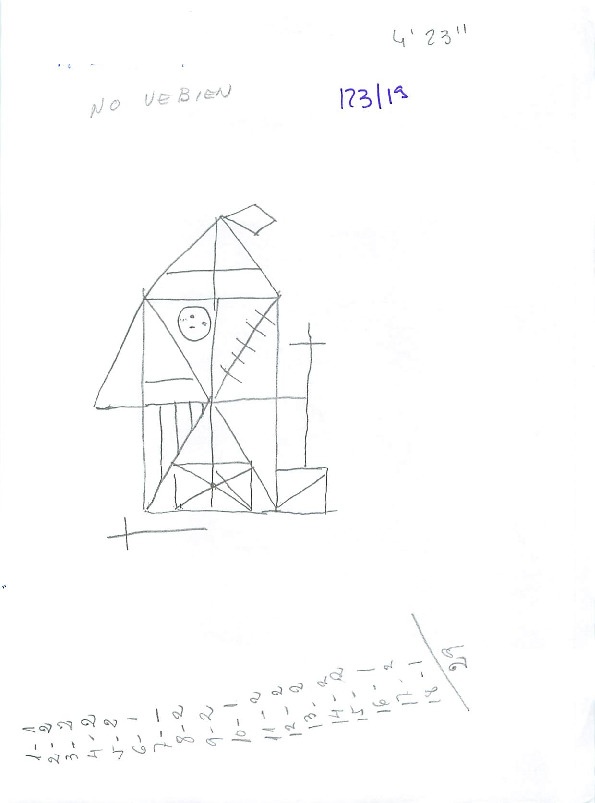 4' 23''
NO VE BIEN
173/19
2-2
3-2
4-2
5-2
6-1
7-1
8-2
9-2
10-1
11-2
12-2
13-2
14-2
15-2
16-1
17-2
18-1
29